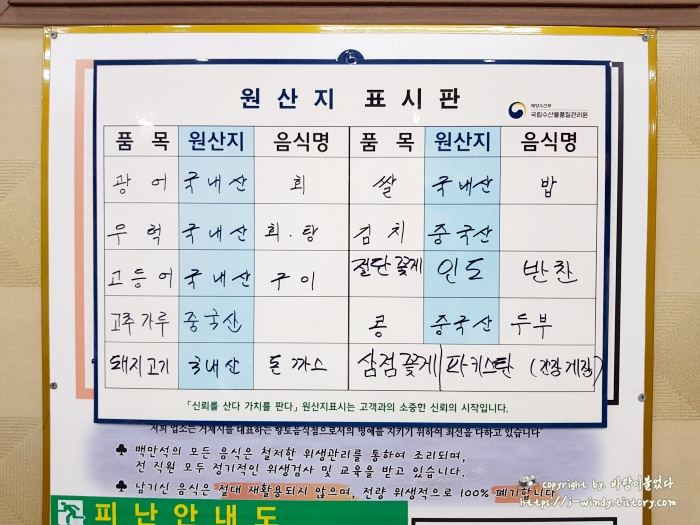 원산지 표시판
해양수산부
국립수산물품질관리원
품 목 원산지 음식명 품 목 원산지 음식명
광 어 국내산 회 쌀 국내산 밥
우 럭 국내산 회·탕 김 치 중국산
고등어 국내산 구 이 절단꽃게 인도 반찬
고추가루 중국산 콩 중국산 두부
돼지고기 국내산 돈까스 삼점꽃게 파키스탄 (간장게장)
「신뢰를 산다 가치를 판다」 원산지표시는 고객과의 소중한 신뢰의 시작입니다.
저희 업소는 거제시를 대표하는 향토음식점으로서의 명예를 지키기 위하여 최선을 다하고 있습니다
♣ 백만석의 모든 음식은 철저한 위생관리를 통하여 조리되며,
전 직원 모두 정기적인 위생검사 및 교육을 받고 있습니다.
♣ 남기신 음식은 절대 재활용되지 않으며, 전량 위생적으로 100% 폐기합니다
피난안내도
copyright by. 바람이불었다
https://j-windy.tistory.com